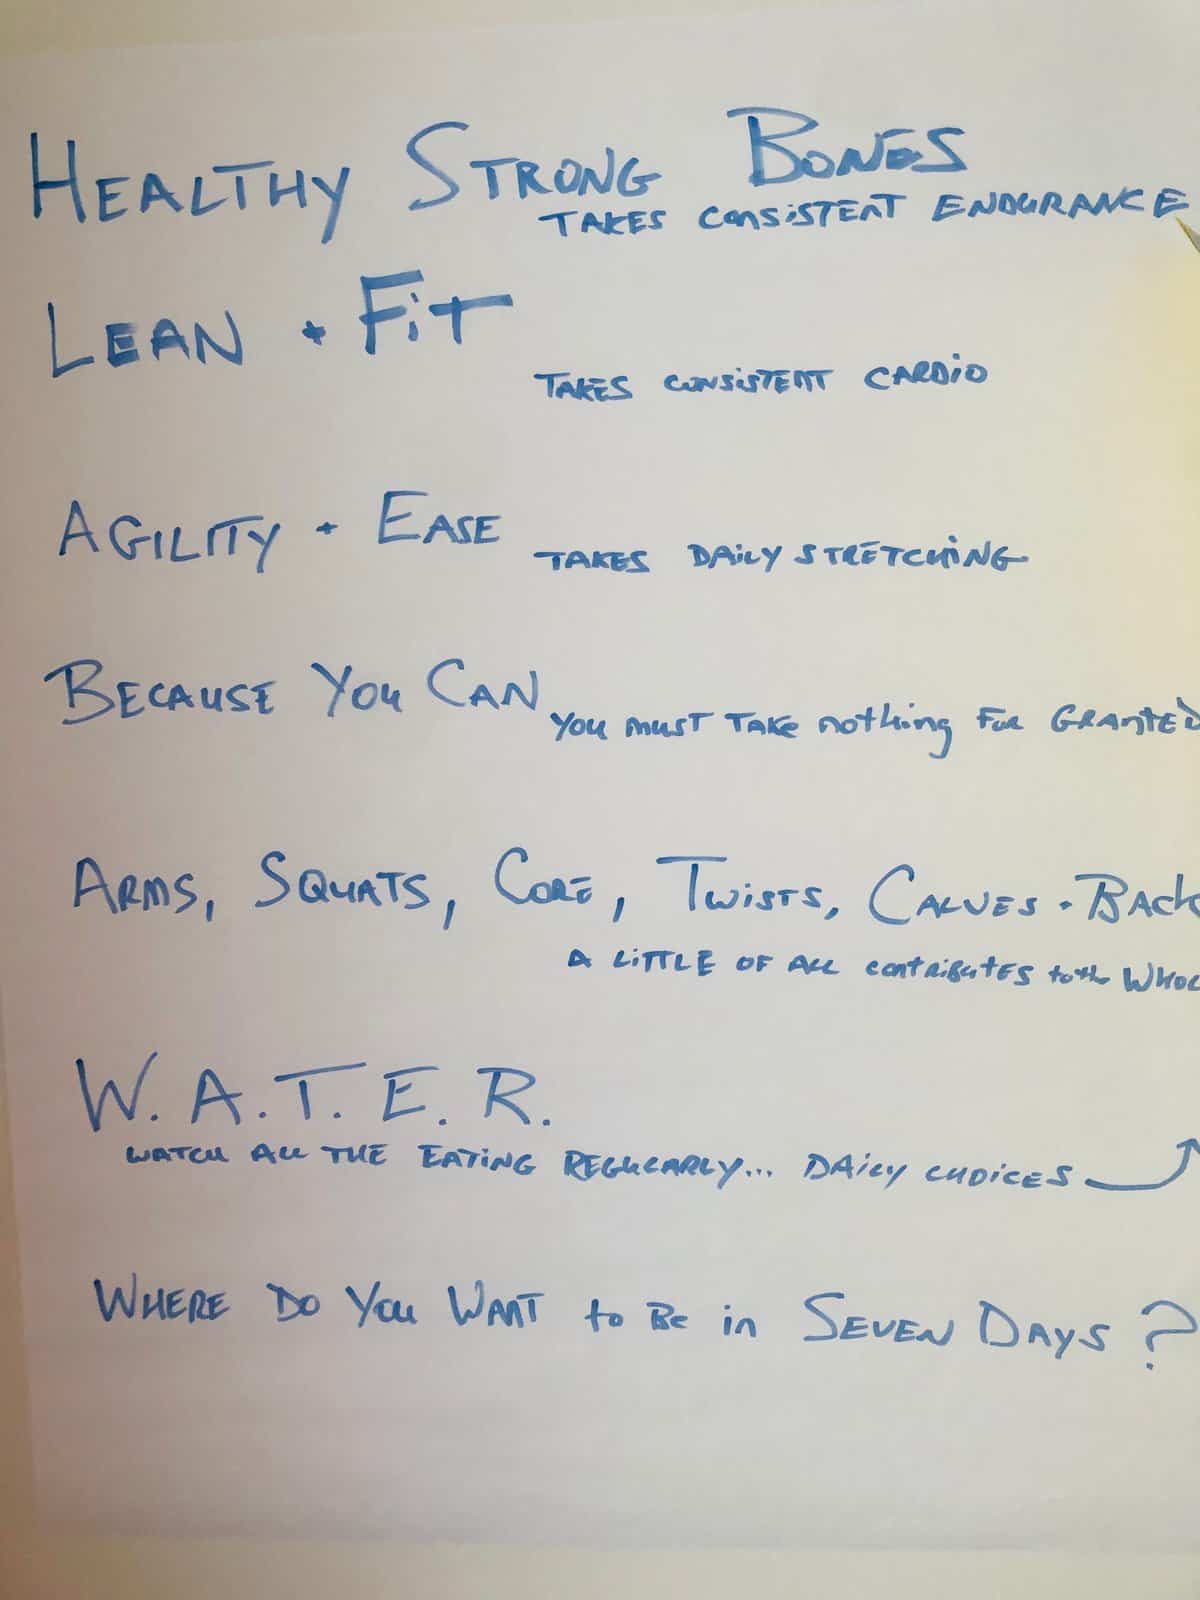 HEALTHY STRONG BONES
TAKES CONSISTENT ENDURANCE
LEAN + FiT
TAKES CONSISTENT CARDiO
AGILITY + EASE
TAKES DAiLY STRETCHiNG
BECAUSE YOU CAN
YOU MUST TAKE nothing FOR GRANTED
ARMS, SQUATS, CORE, TWISTS, CALVES + BACK
A LiTTLE OF ALL contRiButES to the WHOL
W. A. T. E. R.
WATCH ALL THE EATiNG REGULARLY... DAiLY CHOiCES
WHERE DO YOU WANT to BE in SEVEN DAYS?